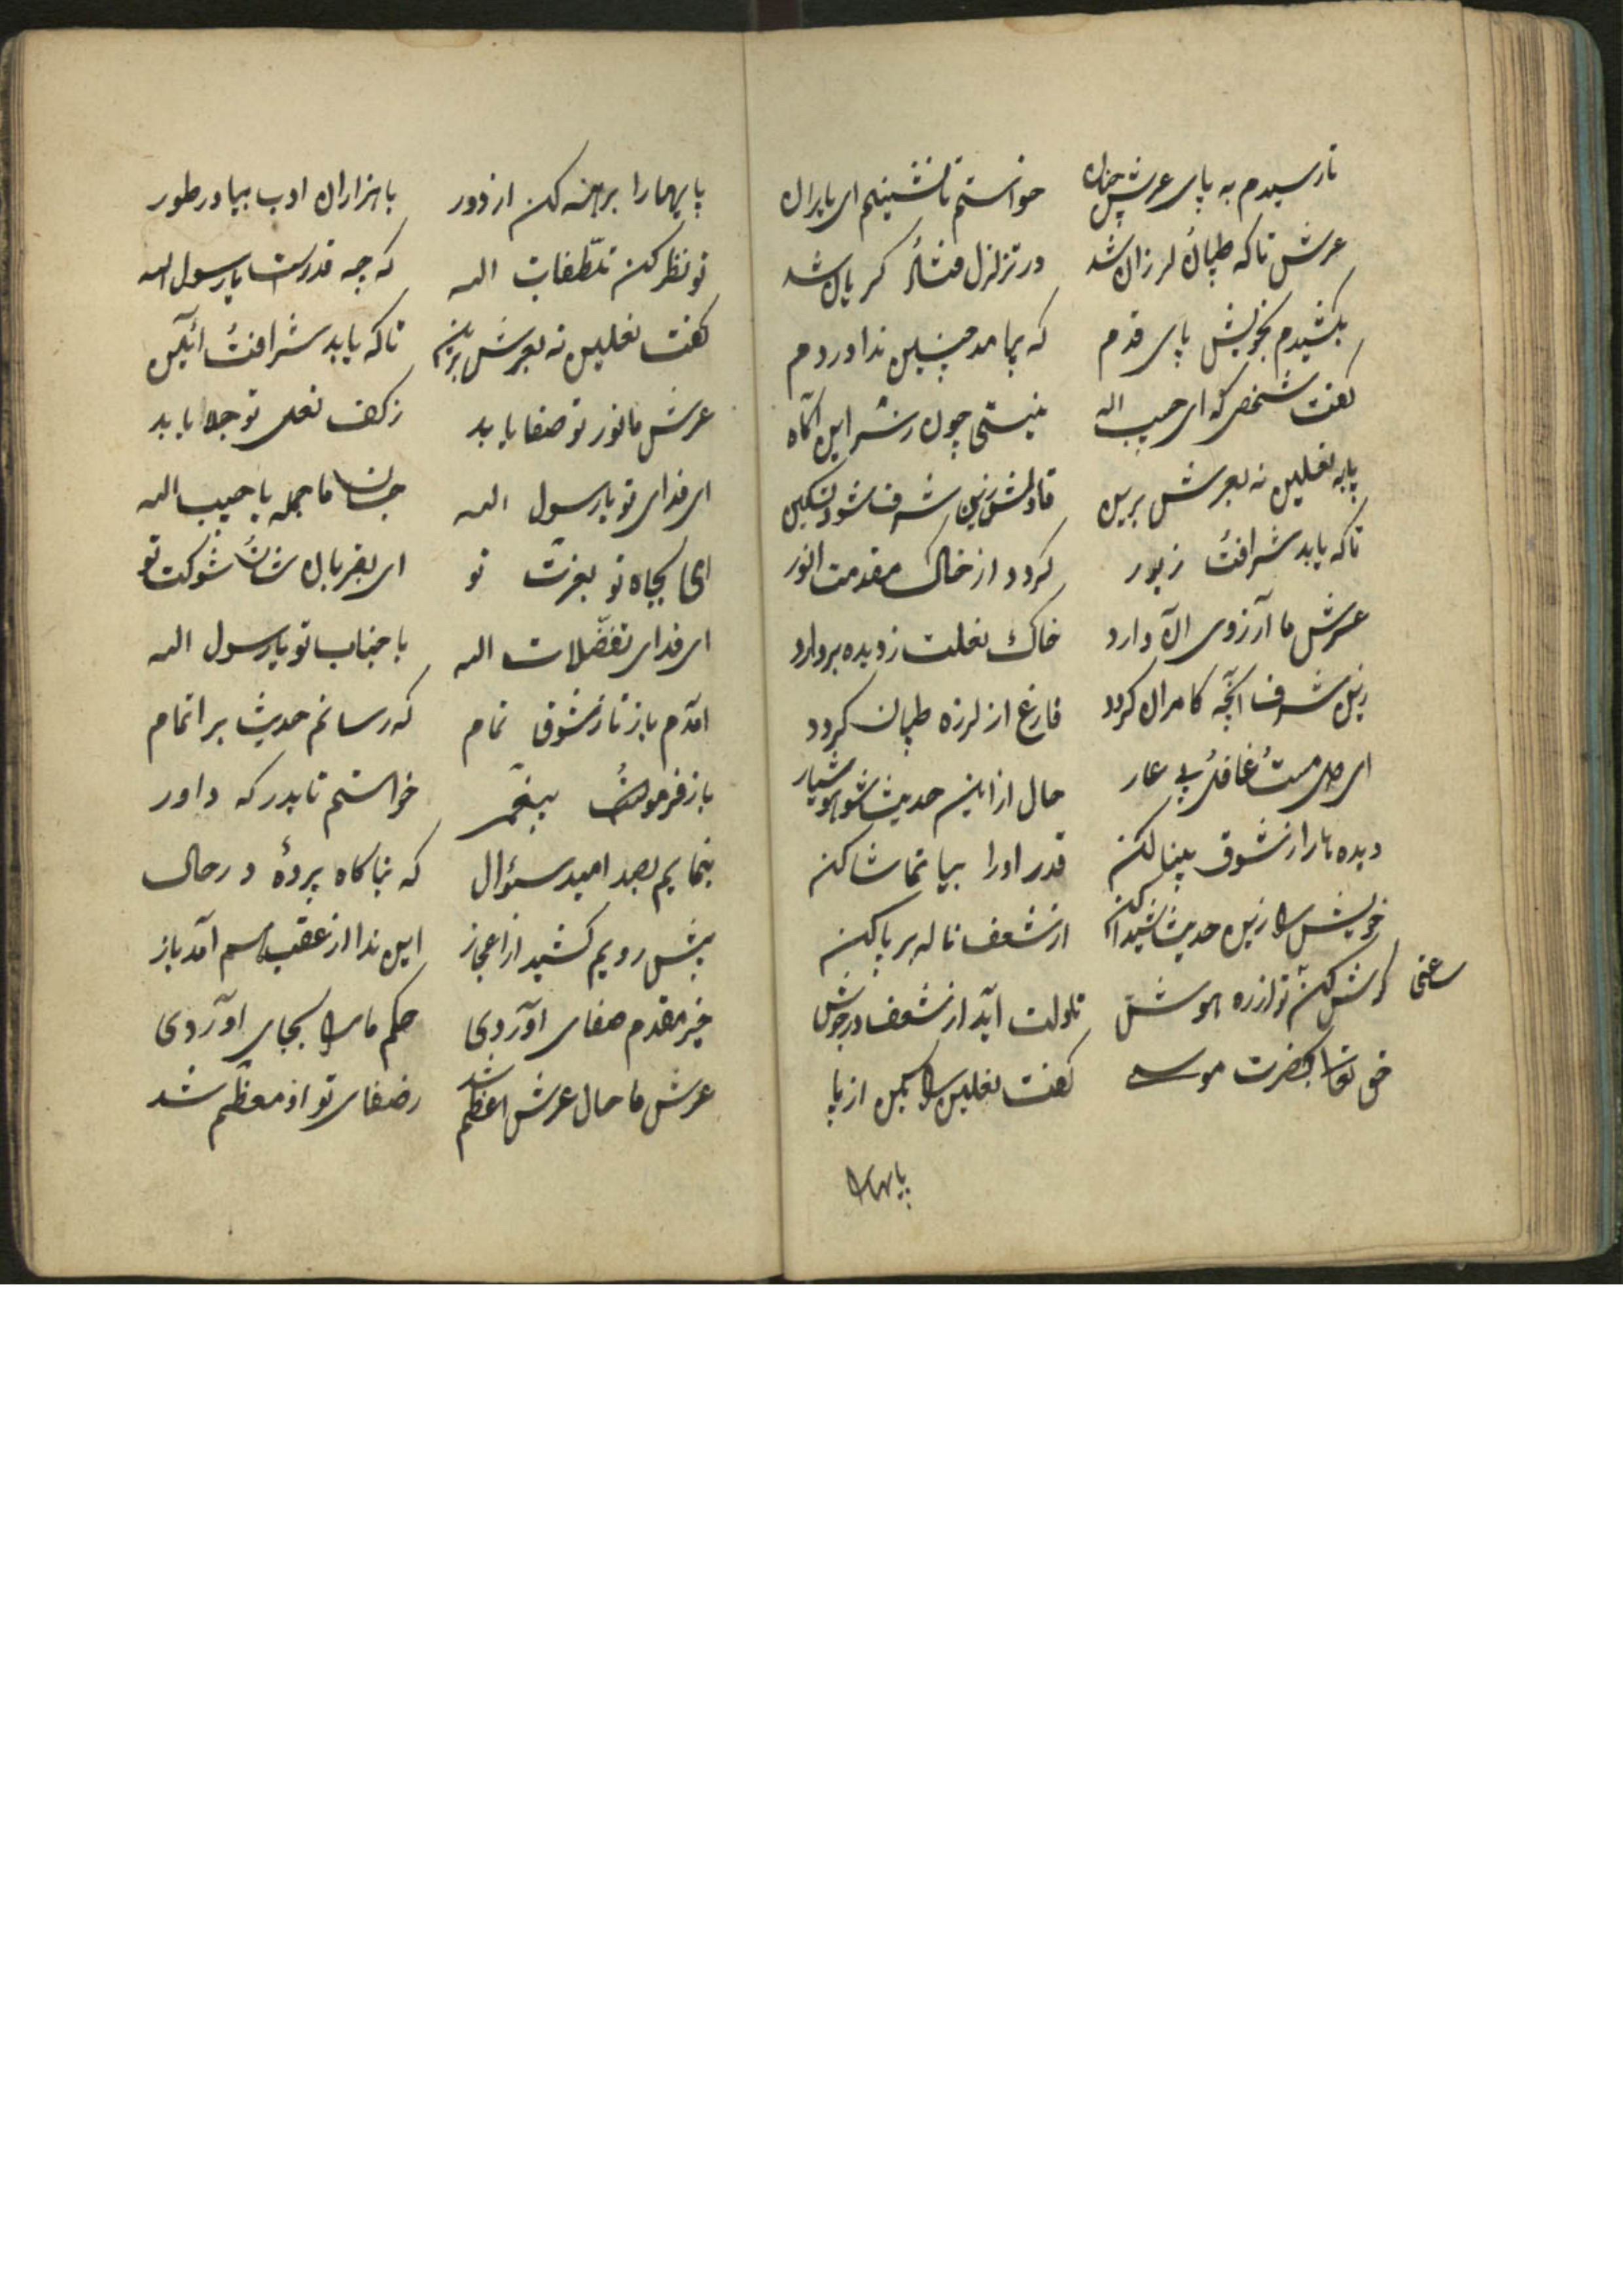 تا رسیدم به پای عرش چنان خواستم تا نشینم ای یاران
عرش تا که طپان لرزان شد در تزلزل فتاد گریان شد
بکشیدم بخویش پای قدم که بیامد چنین ندا دردم
گفت شخصی که ای حبیب اله نیستی چون ز سر این آگاه
پابه نعلین نه بعرش برین تا دلش زین شرف شود تسکین
تا که یابد شرافت زیور گردد از خاک مقدمت انور
عرش ما آرزوی آن دارد خاک نعلت ز دیده بردارد
زین شرف آنچه کامران گردد فارغ از لرزه طپان گردد
ای دل مست غافل بی عار حال از این حدیث شو هوشیار
دیده ها را ز شوق بینا کن قدر او را بیا تماشا کن
خویش را زین حدیث شیدا کن از شعف ناله برپا کن
گوش کن تو از ره هوش تا دلت آید از شعف در جوش
حق تعالی بحضرت موسی گفت نعلین را بکن از پا
پایها را
پایها را برهنه کن از دور با هزاران ادب بیا در طور
تو نظر کن تلطفات اله که چه قدرست یا رسول اله
گفت نعلین نه بعرش برین تا که یابد شرافت آئین
عرش ما نور تو صفا یابد ز کف نعل تو جلا یابد
ای فدای تو یا رسول اله جان ما جمله یا حبیب اله
ای بجاه تو بعزت تو ای بقربان شان شوکت تو
ای فدای تفضلات اله با جناب تو یا رسول اله
آمدم باز تا ز شوق تمام که رسانم حدیث بر اتمام
باز فرمود پیغمبر خواستم تا بدرگه داور
بنمایم بصد امید سؤال که بناگاه پردهٔ در حال
پیش رویم کشید از اعجاز این ندا از عقب آمد باز
خیر مقدم صفای آوردی حکم ما را بجای آوردی
عرش ما حال عرش اعظم شد ز صفای تو او معظم شد